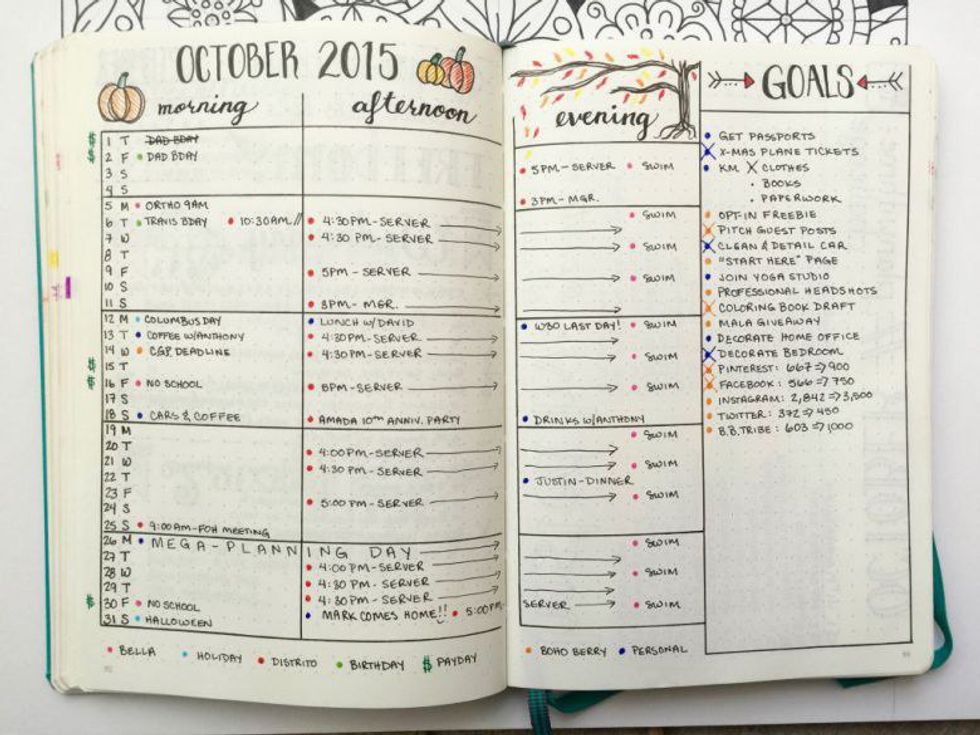 OCTOBER 2015
morning afternoon
$ 1 T DAD BDAY
$ 2 F • DAD BDAY
3 S
4 S
5 M • ORTHO 9AM
6 T • TRAVIS BDAY • 10:30AM // • 4:30PM-SERVER
7 W • 4:30 PM-SERVER
8 T
9 F • 5PM-SERVER
10 S
11 S • 3PM-MGR.
12 M • COLUMBUS DAY • LUNCH W/DAVID
13 T • COFFEE W/ANTHONY • 4:30PM-SERVER
14 W • CGP DEADLINE • 4:30PM-SERVER
$ 15 T
$ 16 F • NO SCHOOL • 5PM-SERVER
17 S
18 S • CARS & COFFEE • AMADA 10TH ANNIV. PARTY
19 M
20 T • 4:00PM-SERVER
21 W • 4:30 PM-SERVER
22 T
23 F • 5:00 PM-SERVER
24 S
25 S • 9:00AM-FOH MEETING
26 M • MEGA-PLANNING DAY
27 T • 4:00 PM-SERVER
28 W • 4:30 PM-SERVER
29 T • 4:30 PM-SERVER
$ 30 F • NO SCHOOL • MARK COMES HOME!! • 5:00PM-
31 S • HALLOWEEN
• BELLA • HOLIDAY • DISTRITO • BIRTHDAY $ PAYDAY
evening
• 5PM-SERVER • SWIM
• 3PM-MGR.
• SWIM
• SWIM
• SWIM
• W30 LAST DAY! • SWIM
• SWIM
• SWIM
• DRINKS W/ANTHONY
• SWIM
• SWIM
• JUSTIN-DINNER
• SWIM
• SWIM
• SWIM
SERVER • SWIM
• BOHO BERRY • PERSONAL
GOALS
• GET PASSPORTS
X X-MAS PLANE TICKETS
• KM X CLOTHES
• BOOKS
• PAPERWORK
• OPT-IN FREEBIE
X PITCH GUEST POSTS
X CLEAN & DETAIL CAR
• "START HERE" PAGE
• JOIN YOGA STUDIO
• PROFESSIONAL HEADSHOTS
X COLORING BOOK DRAFT
• MALA GIVEAWAY
• DECORATE HOME OFFICE
X DECORATE BEDROOM
X PINTEREST: 667 => 900
X FACEBOOK: 566 => 750
• INSTAGRAM: 2,842 => 3,500
• TWITTER: 372 => 450
• B.B.TRIBE: 603 => 1000